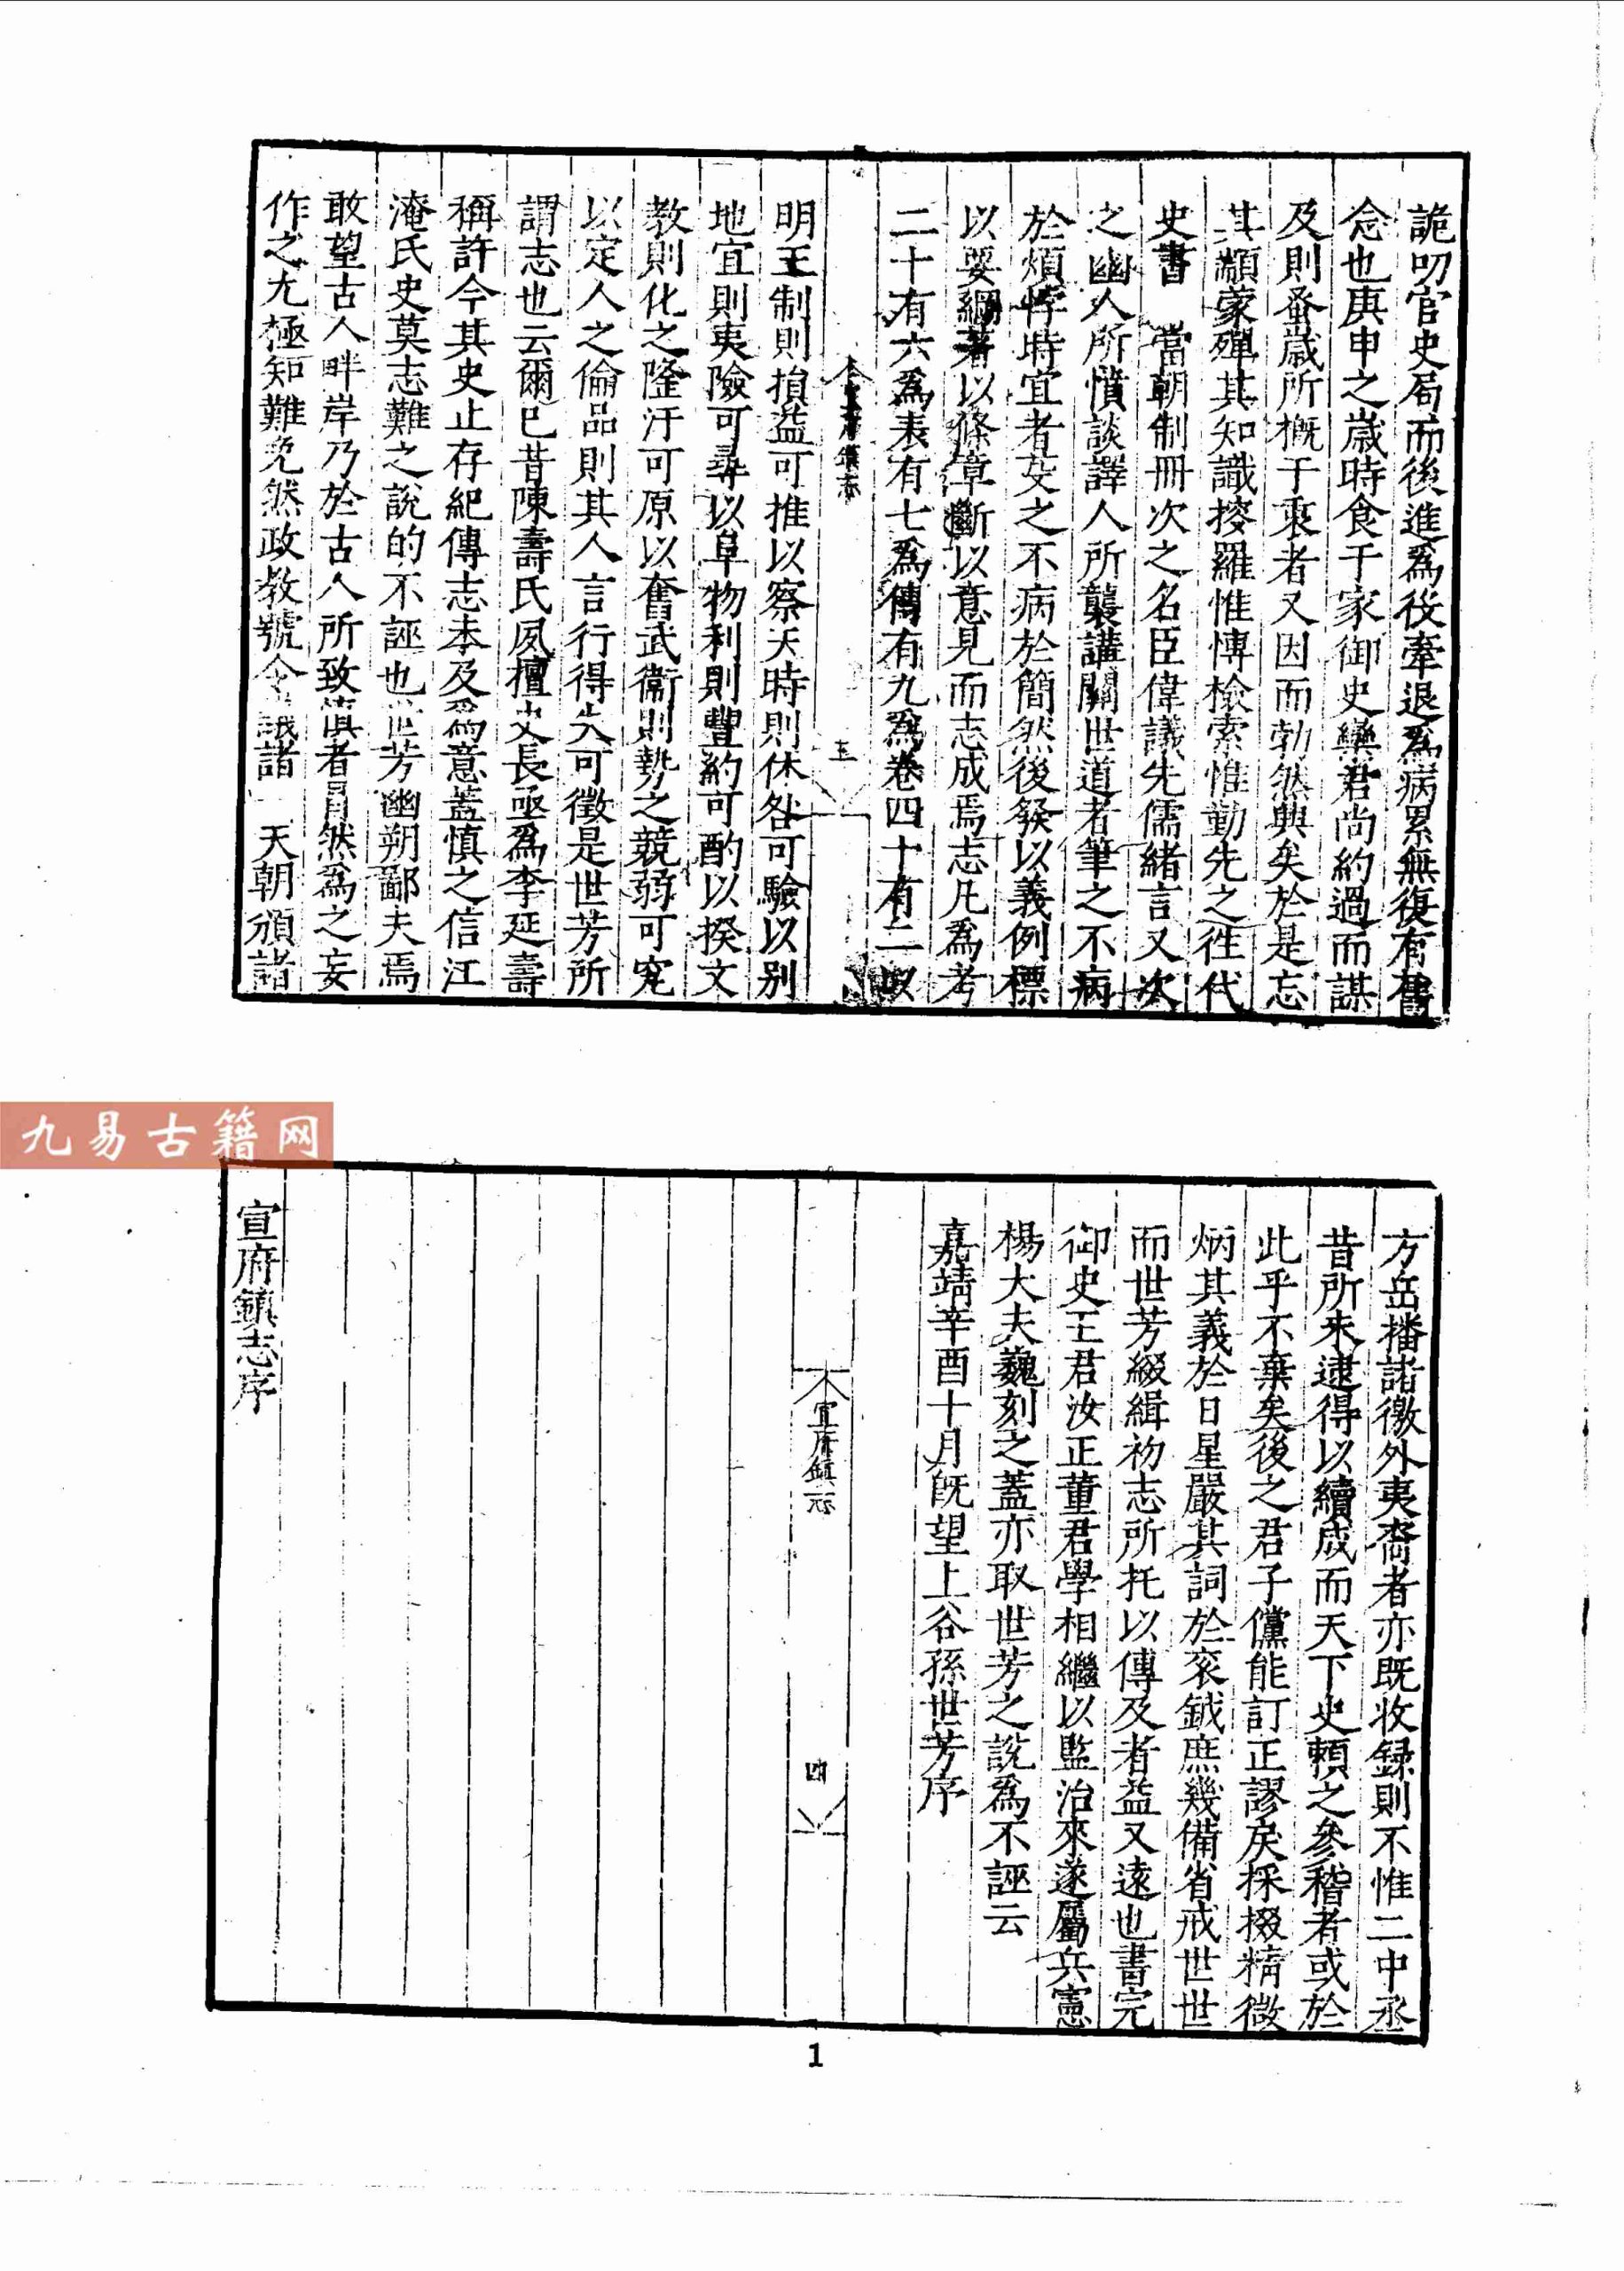 詭叨官史局而後進爲役牽退爲病累無復有書
念也庚申之歲時食干家御史欒君尚約過而謀
及則蚤歲所概于衷者又因而勃然興矣於是忘
其顓蒙殫其知識搜羅惟博檢索惟勤先之徃代
史書 當朝制冊次之名臣偉議先儒緒言又次
之幽人所憤談譯人所襲講關世道者筆之不病
於煩悖時宜者芟之不病於簡然後發以義例標
以要綱著以條章斷以意見而志成焉志凡爲考
二十有六爲表有七爲傳有九爲卷四十有二以
宣府鎮志
三
明王制則損益可推以察天時則休咎可驗以别
地宜則夷險可尋以阜物利則豐約可酌以揆文
教則化之隆汙可原以奮武衞則勢之競弱可究
以定人之倫品則其人言行得失可徵是世芳所
謂志也云爾已昔陳壽氏夙擅史長亟爲李延壽
稱許今其史止存紀傳志未及爲意蓋慎之信江
淹氏史莫志難之說的不誣也世芳幽朔鄙夫焉
敢望古人畔岸乃於古人所致慎者冒然爲之妄
作之尤極知難免然政教號令議諸 天朝頒諸
方岳播諸徼外夷裔者亦既收録則不惟二中丞
昔所未逮得以續成而天下史頼之參稽者或於
此乎不棄矣後之君子儻能訂正謬戾採掇精微
炳其義於日星嚴其詞於衮鉞庶幾備省戒世世
而世芳綴緝初志所托以傳及者益又遠也書完
御史王君汝正董君學相繼以監治來遂屬兵憲
楊大夫巍刻之蓋亦取世芳之說爲不誣云
嘉靖辛酉十月既望上谷孫世芳序
宣府鎮志
四
宣府鎮志序
九易古籍网
1